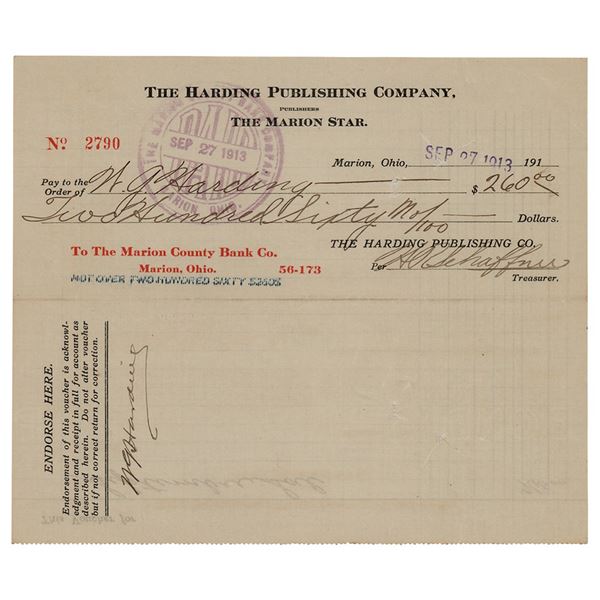 THE HARDING PUBLISHING COMPANY,
PUBLISHERS
THE MARION STAR.
No 2790
THE MARION COUNTY BANK COMPANY
PAID
SEP 27 1913
MARION, OHIO.
Marion, Ohio, SEP 27 1913 191
Pay to the
Order of W. G. Harding $260.00
Two Hundred Sixty No/100 Dollars.
THE HARDING PUBLISHING CO.
To The Marion County Bank Co.
Marion, Ohio. 56-173
Per H Schaffner
Treasurer.
NOT OVER TWO HUNDRED SIXTY $260$
ENDORSE HERE.
Endorsement of this voucher is acknowl-
edgment and receipt in full for account as
described herein. Do not alter voucher
but if not correct return for correction.
W G Harding
This Voucher for